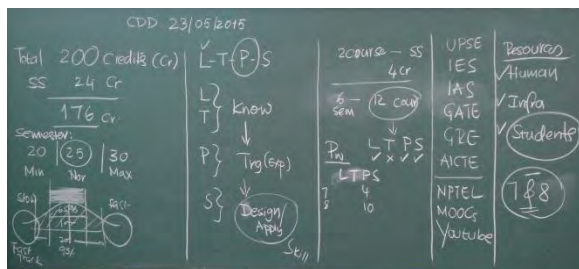 CDD 23/05/2015
Total 200 Credits (Cr)
SS 24 Cr
176 Cr
Semester:
20 25 30
Min Nor Max
Slow
Fast
L-T-P-S
L} Know
T}
P} Trg (Exp)
S} Design/
Apply
Skill
2 course - SS
4 Cr
6 - 12 cour
sem
L T P S
L T P S
7 4
8 10
UPSE
IES
IAS
GATE
GRE
AICTE
NPTEL
MOOCs
Youtube
Resources
Human
Infra
Students
7 & 8